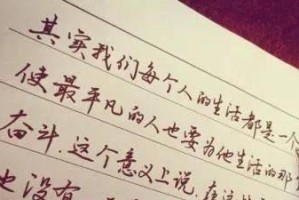 其实我们每个人的生活都是一个
使最平凡的人也要为他生活的那
奋斗.这个意义上说,在这
也没有